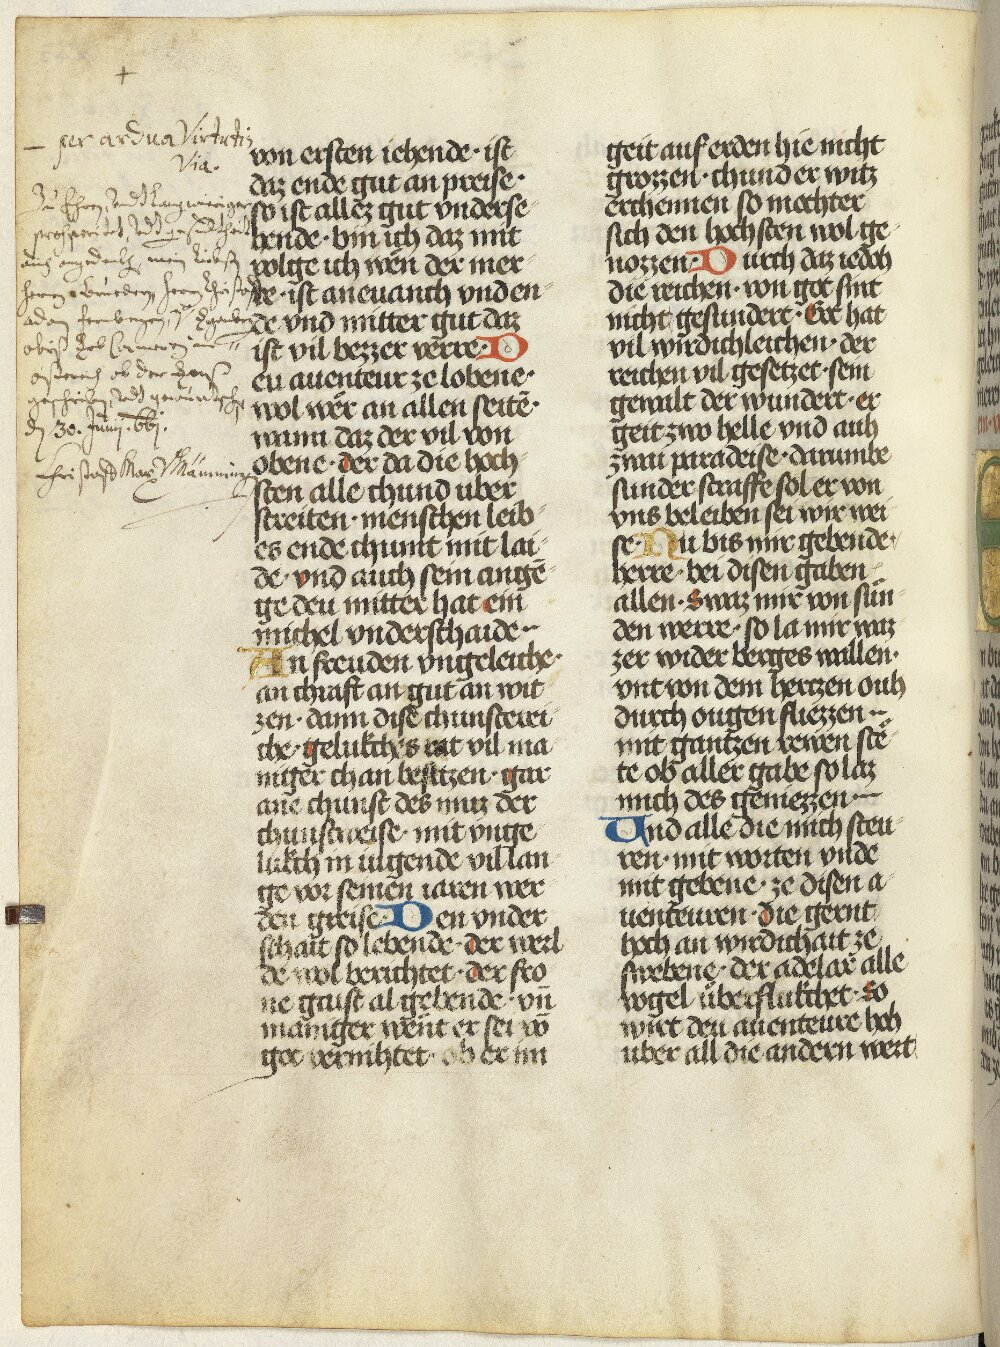 per ardua Virtutis
Via.
dj 30. Junij. 661.
von ersten iehende · ist
daz ende gut an preise ·
so ist allez gut vnderse
hende · bin ich daz mit
volge ich wen der mer
re · ist aneuanch vnd en
de vnd mitter gut daz
ist vil bezzer verre · D
eu auenteur ze lobene ·
wol wer an allen seitē ·
wann daz der vil von
obene · der da die hoch
sten alle chund uber
streiten · menschen leib
es ende chumt mit lai
de · vnd auch sein angē
ge deu mitter hat ein
michel vnderschaide ·
An freuden vngeleiche ·
an chraft an gut an wit
zen · dann dise chunsterei
che · gelukches rat vil ma
niger chan besitzen · gar
ane chunst des muz der
chunstreise · mit vnge
lukch in iugende vil lan
ge vor seinen iaren wer
den greise · Den vnder
schait so lebende · der werl
de wol berichtet · der fro
ne gaist al gebende · vn̄
maniger went er sei vō
got vernihtet · ob er im
geit auf erden hie nicht
grozzen · chund er witz
erchennen so mochter
sich den hochsten wol ge
nozzen · Durch daz iedoch
die reichen · von got sint
nicht gesundert · Got hat
vil wirdichleichen · der
reichen vil gesetzet · sein
gewalt der wundert · er
geit zwo helle vnd auh
zwai paradeise · darumbe
sunder straffe sol er von
vns beleiben sei wir wei
se · Nu bis mir gebende ·
herre · bei disen gaben
allen · swaz mir von sün
den werre · so la mir waz
zer wider berges wallen ·
vnt von dem hertzen ouh
durch ougen fliezzen
mit gantzen rewen stē
te ob aller gabe so laz
mich des geniezzen ·
Und alle die mich steu
ren · mit worten vnde
mit gebene · ze disen a
uenteuren · die gernt
hoch an wirdichait ze
swebene · der adelar alle
vogel überflukchet · so
wirt deu auenteure hoh
uber all die andern wert